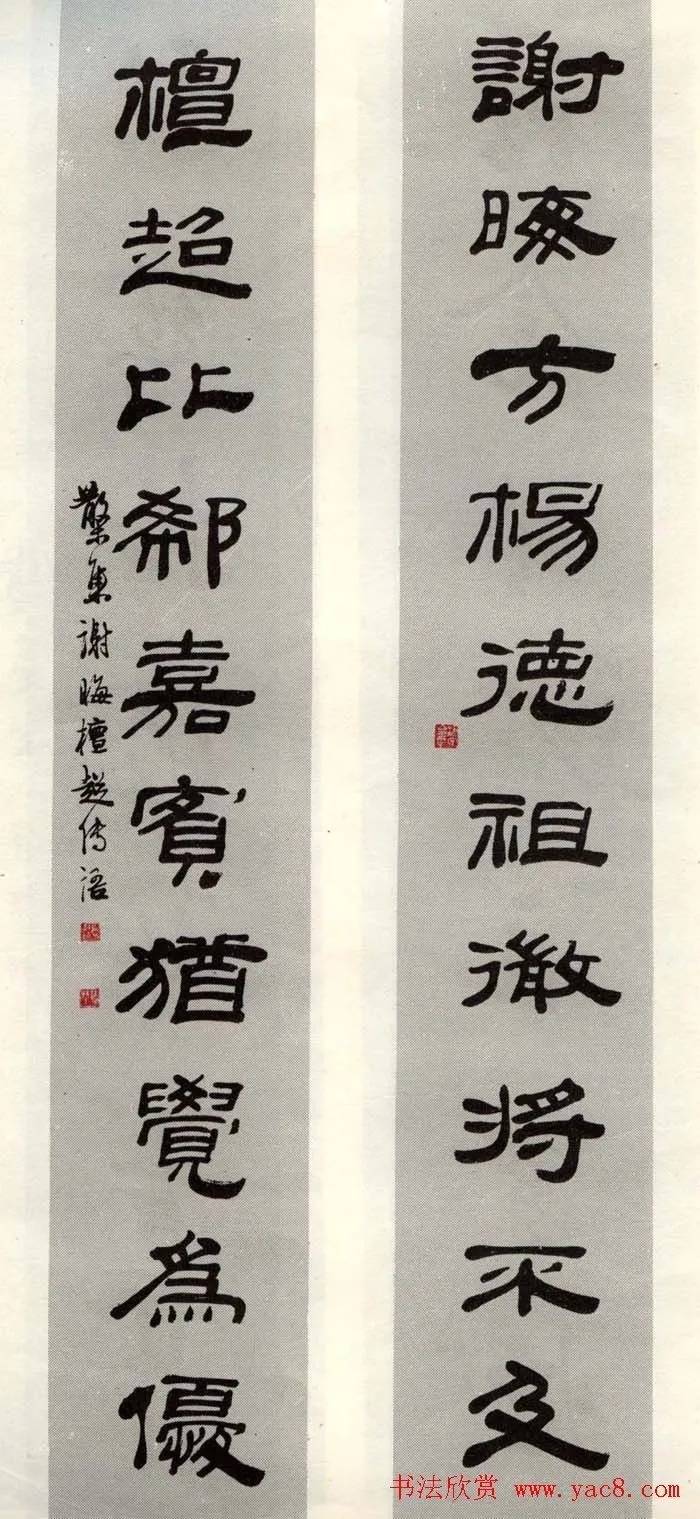 謝晦方楊德祖微將不及
檀超比郗嘉賓猶覺為優
槃集謝晦檀超傳語
书法欣赏 www.yac8.com